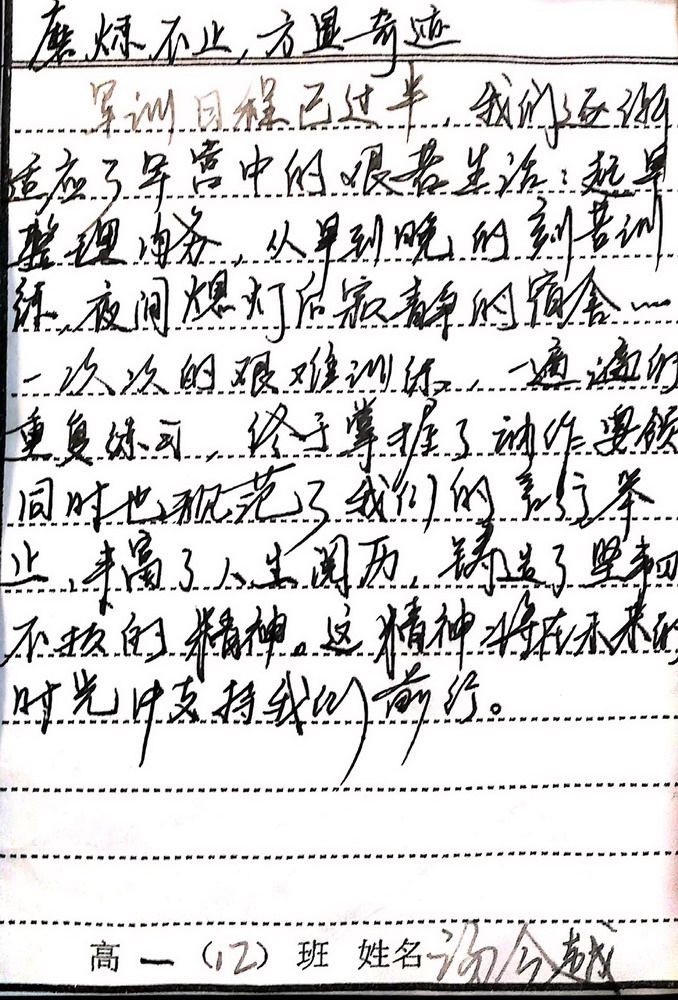 磨炼不止，方显奇迹
军训日程已过半，我们逐渐
适应了军营中的艰苦生活：起早
整理内务，从早到晚的刻苦训
练，夜间熄灯后寂静的宿舍……
一次次的艰难训练，一遍遍的
重复练习，终于掌握了动作要领
同时也规范了我们的言行举
止，丰富了人生阅历，铸造了坚韧
不拔的精神。这精神将在未来的
时光中支持我们前行。
高一（12）班 姓名